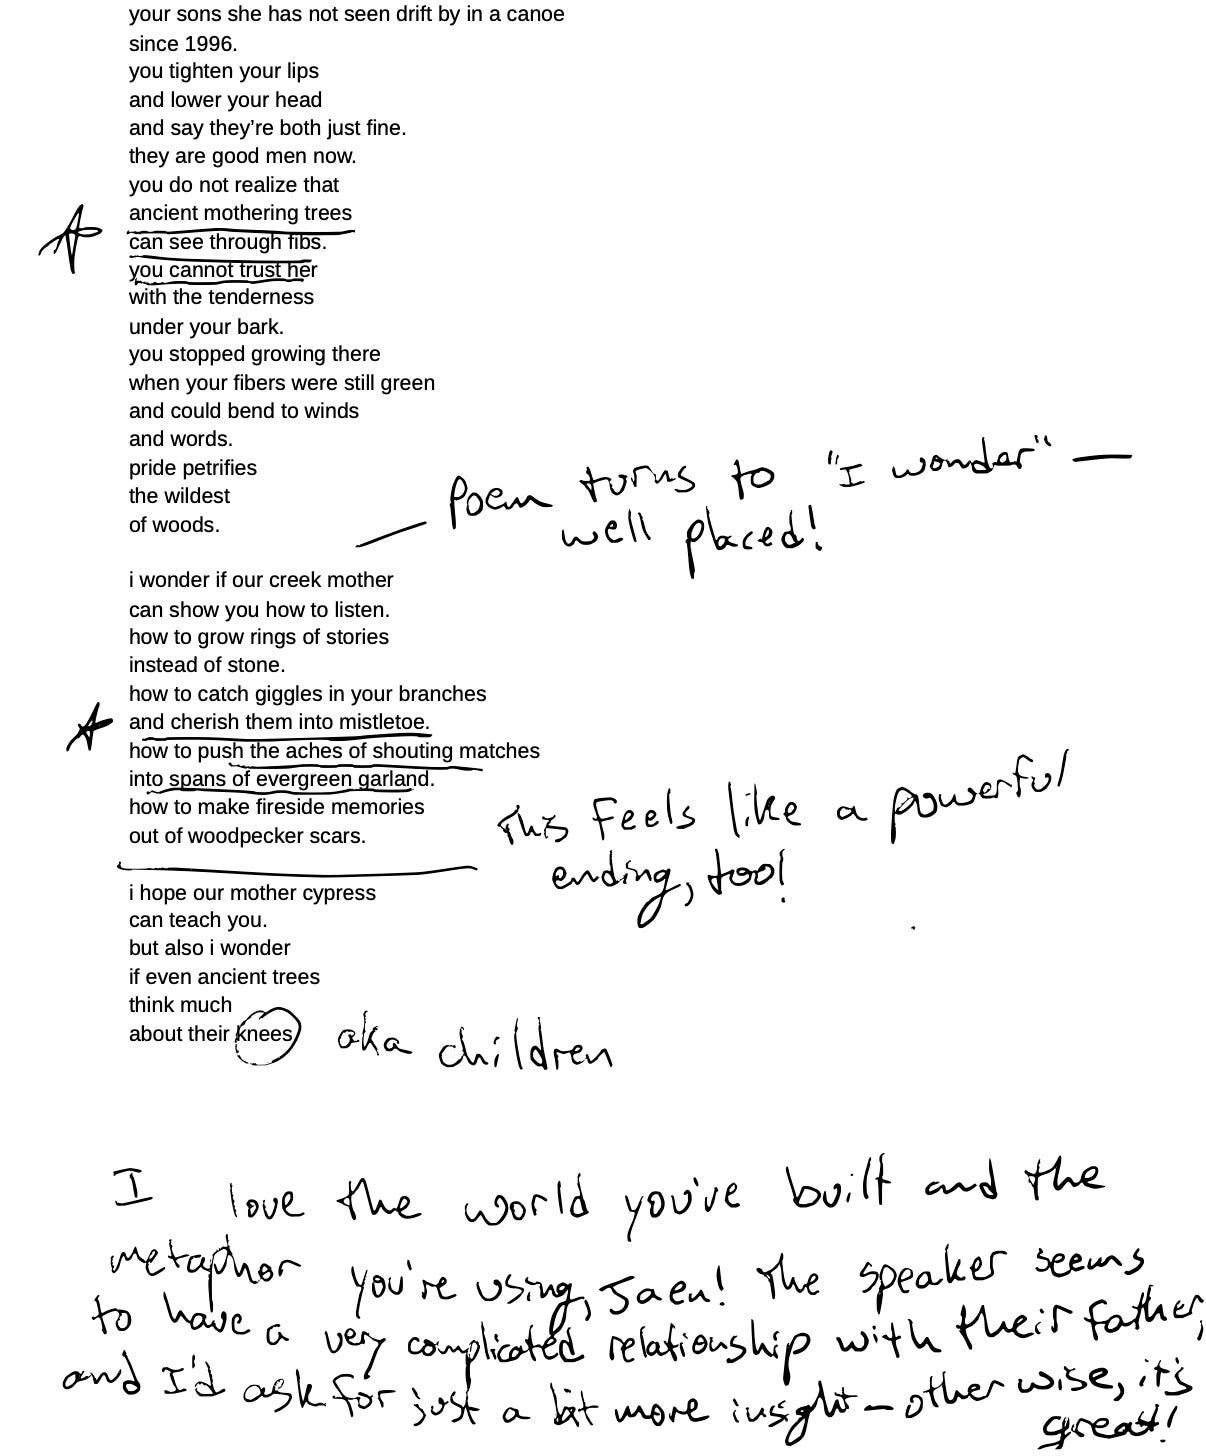 your sons she has not seen drift by in a canoe
since 1996.
you tighten your lips
and lower your head
and say they’re both just fine.
they are good men now.
you do not realize that
ancient mothering trees
can see through fibs.
you cannot trust her
with the tenderness
under your bark.
you stopped growing there
when your fibers were still green
and could bend to winds
and words.
pride petrifies
the wildest
of woods.
Poem turns to "I wonder" —
well placed!
i wonder if our creek mother
can show you how to listen.
how to grow rings of stories
instead of stone.
how to catch giggles in your branches
and cherish them into mistletoe.
how to push the aches of shouting matches
into spans of evergreen garland.
how to make fireside memories
out of woodpecker scars.
This feels like a powerful
ending, too!
i hope our mother cypress
can teach you.
but also i wonder
if even ancient trees
think much
about their knees
aka children
I love the world you've built and the
metaphor you're using, Jaen! The speaker seems
to have a very complicated relationship with their father,
and I'd ask for just a bit more insight – otherwise, it's
great!